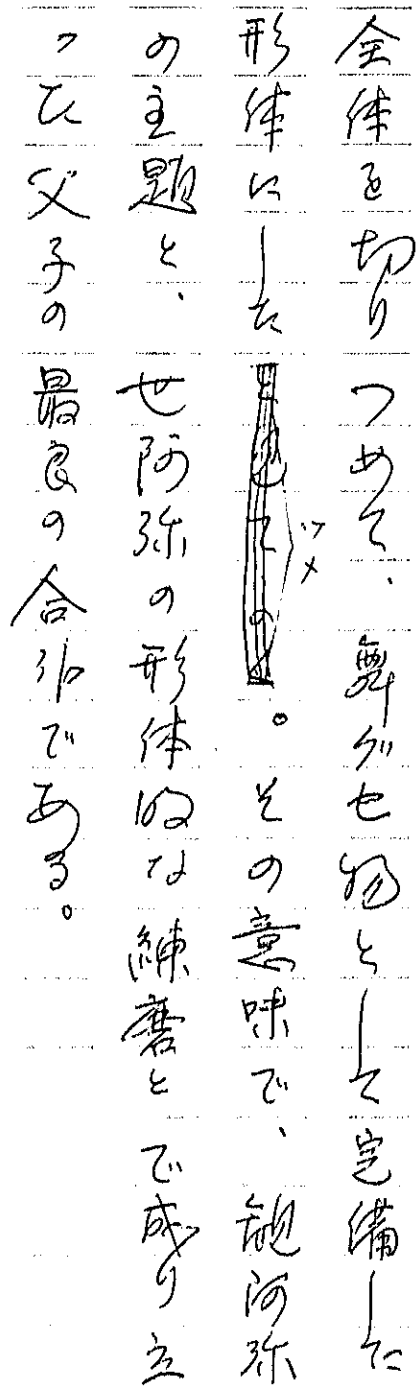 全体を切りつめて、舞グセ物として完備した
形体にした。その意味で、観阿弥
ツメ
の主題と、世阿弥の形体的な練磨とで成り立
つた父子の最良の合作である。